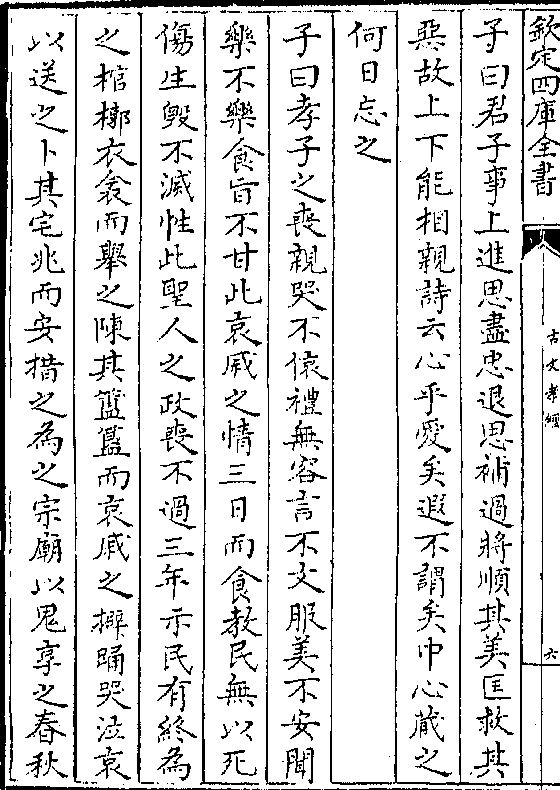 欽定四庫全書
古文孝經
六
子曰君子事上進思盡忠退思補過將順其美匡救其
惡故上下能相親詩云心乎愛矣遐不謂矣中心藏之
何日忘之
子曰孝子之喪親哭不偯禮無容言不文服美不安聞
樂不樂食旨不甘此哀戚之情三日而食教民無以死
傷生毀不滅性此聖人之政喪不過三年示民有終為
之棺槨衣衾而舉之陳其簠簋而哀戚之擗踊哭泣哀
以送之卜其宅兆而安措之為之宗廟以鬼享之春秋